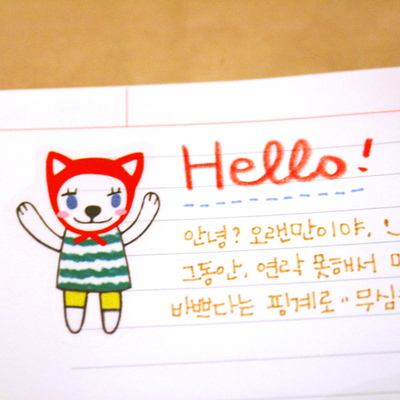 Hello!
안녕? 오랜만이야.
그동안, 연락 못해서
바쁘다는 핑계로..